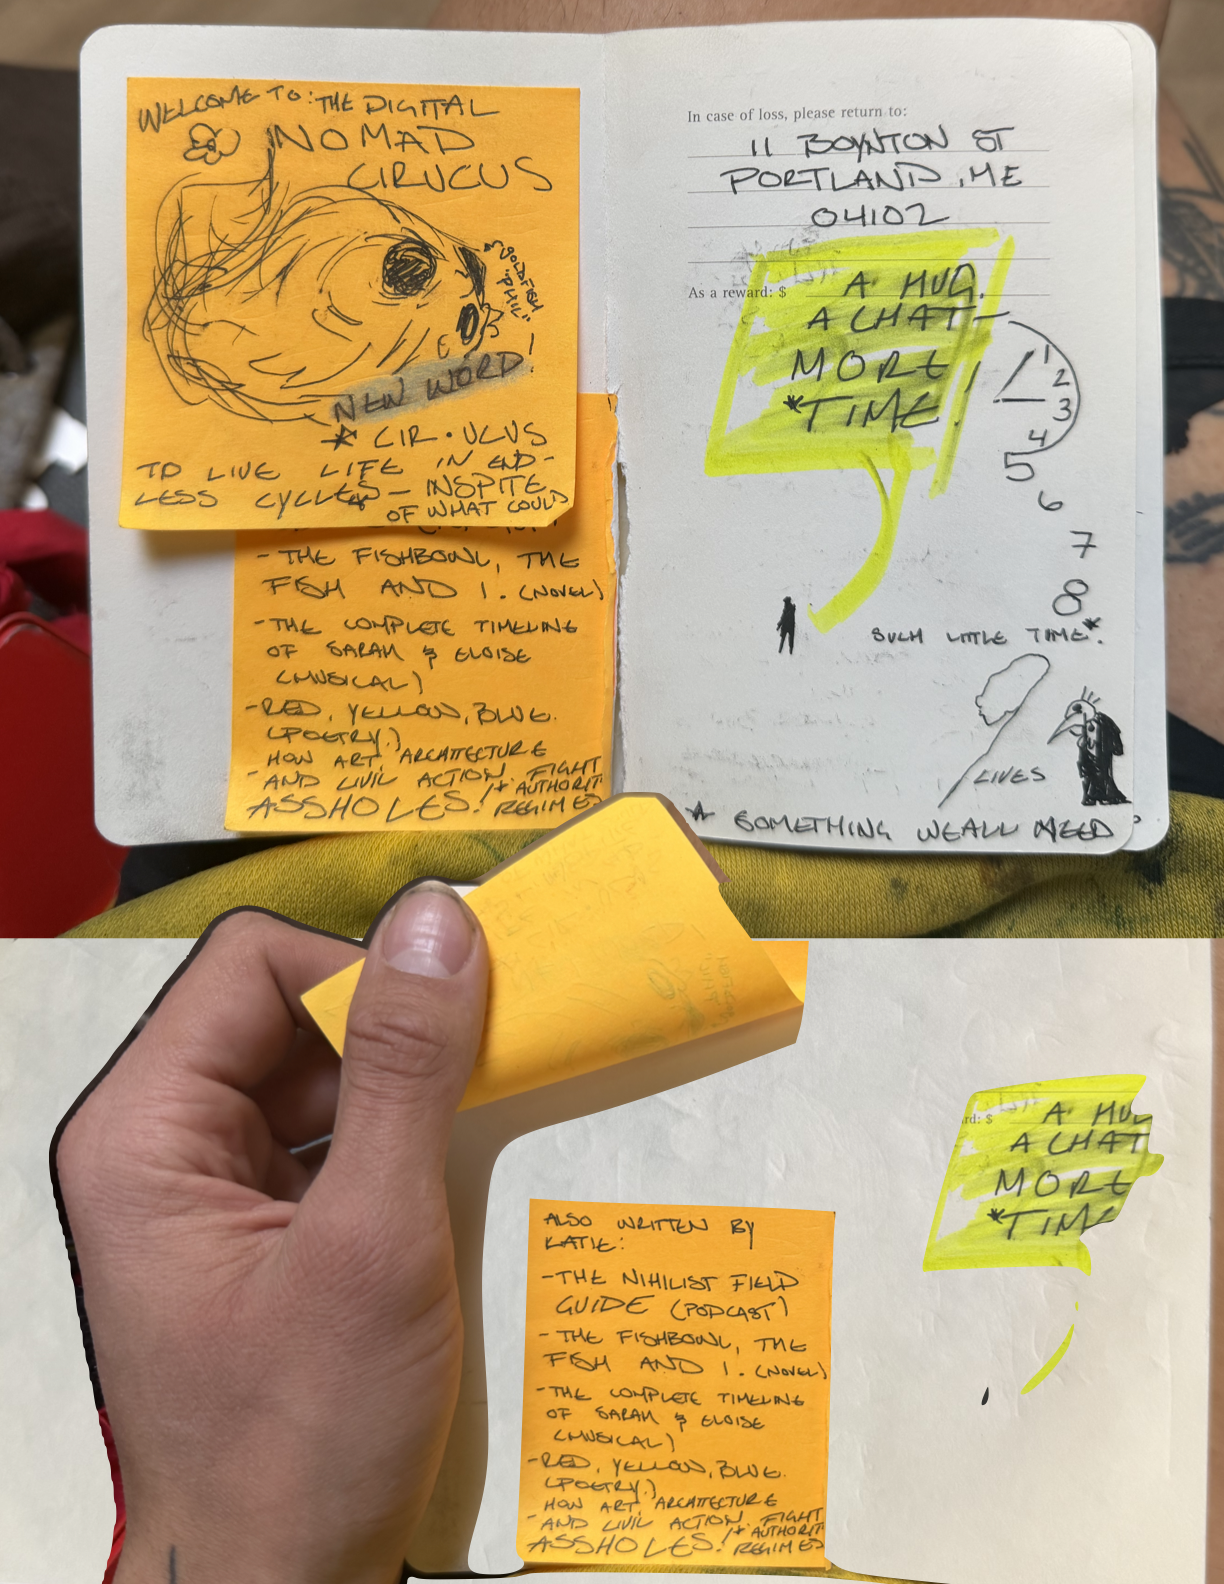 WELCOME TO: THE DIGITAL
NOMAD
CIRUCUS
GOLDFISH
"PHIL"
NEW WORD!
* CIR·UCUS
TO LIVE LIFE IN END-
LESS CYCLES — INSPITE
OF WHAT COULD
- THE FISHBOWL, THE
FISH AND I. (NOVEL)
- THE COMPLETE TIMELINE
OF SARAH & ELOISE
(MUSICAL)
- RED, YELLOW, BLUE.
(POETRY.)
- HOW ART, ARCHITECTURE
AND CIVIL ACTION FIGHT
ASSHOLES! /+ AUTHORIT
REGIMES
In case of loss, please return to:
11 BOYNTON ST
PORTLAND, ME
04102
As a reward: $
A HUG.
A CHAT
MORE
*TIME!
1
2
3
4
5
6
7
8
SUCH LITTLE TIME*.
LIVES
* SOMETHING WE ALL NEED
rd: $
A HU
A CHAT
MORE
*TIM
ALSO WRITTEN BY
KATIE:
- THE NIHILIST FIELD
GUIDE (PODCAST)
- THE FISHBOWL, THE
FISH AND I. (NOVEL)
- THE COMPLETE TIMELINE
OF SARAH & ELOISE
(MUSICAL)
- RED, YELLOW, BLUE.
(POETRY.)
- HOW ART, ARCHITECTURE
AND CIVIL ACTION FIGHT
ASSHOLES! /+ AUTHORIT
REGIMES